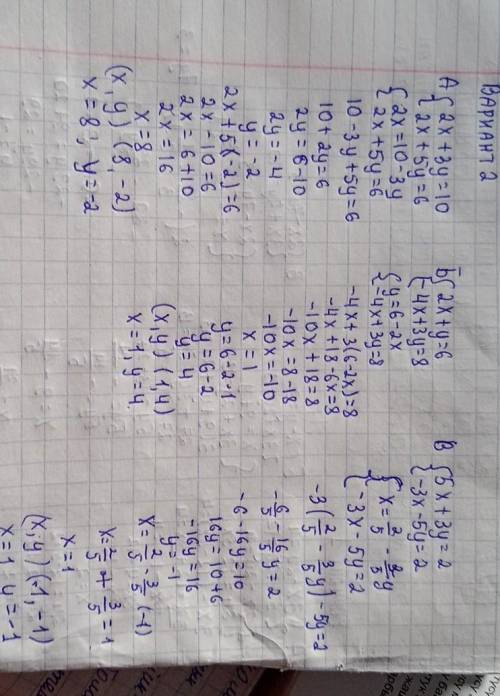 ВАРИАНТ 2
А { 2x+3y=10
{ 2x+5y=6
{ 2x=10-3y
{ 2x+5y=6
10-3y+5y=6
10+2y=6
2y=6-10
2y=-4
y=-2
2x+5(-2)=6
2x-10=6
2x=6+10
2x=16
x=8
(x,y) (8,-2)
x=8, y=-2
б { 2x+y=6
{ -4x+3y=8
{ y=6-2x
{ -4x+3y=8
-4x+3(6-2x)=8
-4x+18-6x=8
-10x+18=8
-10x=8-18
-10x=-10
x=1
y=6-2·1
y=6-2
y=4
(x,y) (1,4)
x=1, y=4
В { 5x+3y=2
{ -3x-5y=2
{ x=2/5-3/5y
{ -3x-5y=2
-3(2/5-3/5y)-5y=2
-6/5-16/5y=2
-6-16y=10
16y=10+6
-16y=16
y=-1
x=2/5-3/5·(-1)
x=2/5+3/5=1
x=1
(x,y) (1,-1)
x=1 y=-1